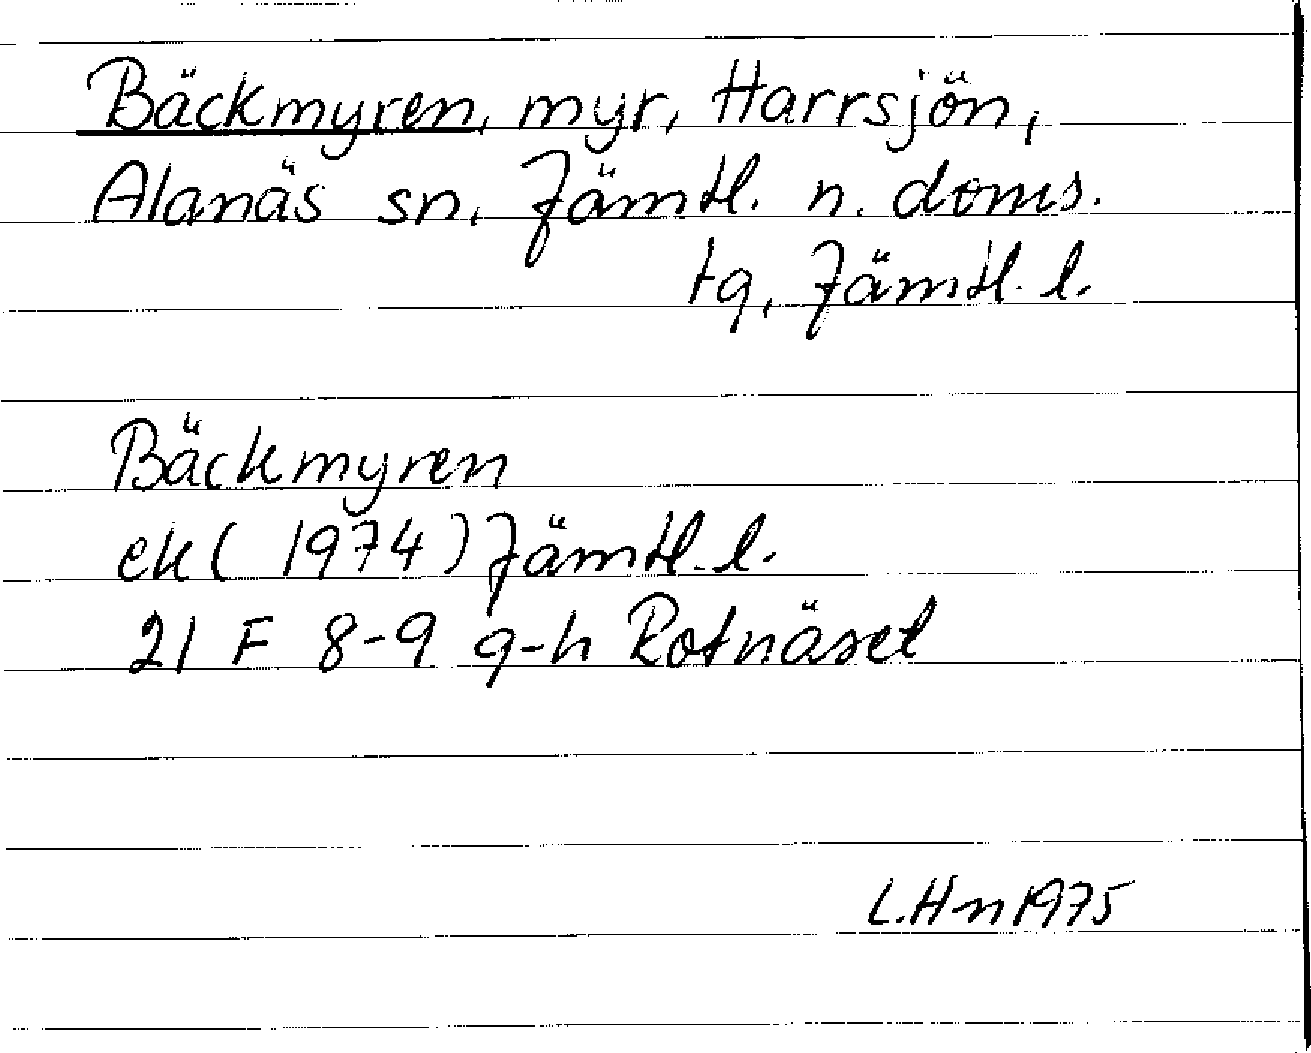 Bäckmyren, myr, Harrsjön,
Alanäs sn, Jämtl. n. doms.
tg, Jämtl. l.
Bäckmyren
ek (1974) Jämtl. l.
21 F 8-9 g-h Rotnäset
L.Hn 1975